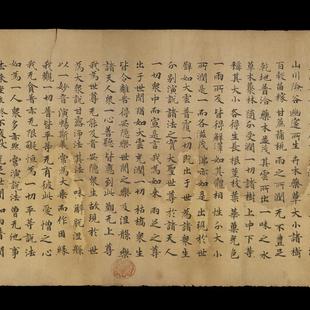 山川險谷 幽邃所生 卉木藥草 大小諸樹
百穀苗稼 甘蔗蒲萄 雨之所潤 无不豐足
乾地普洽 藥木並茂 其雲所出 一味之水
草木叢林 隨分受潤 一切諸樹 上中下等
稱其大小 各得生長 根莖枝葉 華菓光色
一雨所及 皆得鮮澤 如其體相 性分大小
所潤是一 而各滋茂 佛亦如是 出現於世
譬如大雲 普覆一切 既出于世 為諸眾生
分別演說 諸法之實 大聖世尊 於諸天人
一切眾中 而宣是言 我為如來 兩足之尊
出于世間 猶如大雲 充潤一切 枯槁眾生
皆令離苦 得安隱樂 世間之樂 及涅槃樂
諸天人眾 一心善聽 皆應到此 覲无上尊
我為世尊 无能及者 安隱眾生 故現於世
為大眾說 甘露淨法 其法一味 解脫涅槃
以一妙音 演暢斯義 常為大乘 而作因緣
我觀一切 普皆平等 无有彼此 愛憎之心
我无貪著 亦无限礙 恒為一切 平等說法
如為一人 眾多亦然 常演說法 曾无他事
去來坐立 終不疲厭 充足世間 如雨普潤